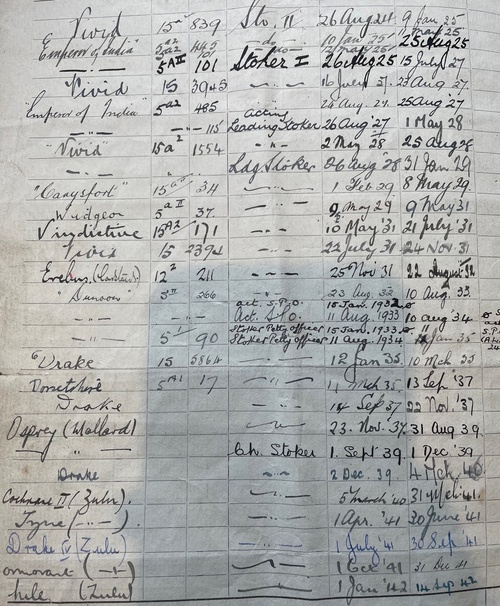 Vivid 15ᵃ² 839 Sto. II 26 Aug 24 9 Jan 25
"Emperor of India" 5ᵃ² -do- 10 Jan 25
5ᴬᴵᴵ 101 Stoker I 26 Aug 25 15 July 27
Vivid 15 3945 -"- 16 July 27 23 Aug 27
"Emperor of India" 5ᵃ² 485 -"- 24 Aug 27 25 Aug 27
-"- 115 Acting Leading Stoker 26 Aug '27 1 May '28
"Vivid" 15ᵃ² 1554 -"- 2 May 28 25 Aug 28
-"- Ldg Stoker 26 Aug '28 31 Jan 29
"Canysfort" 34 -"- 1 Feb 29 8 May 29
Widgeon 5ᵃᴵᴵ 37 -"- 9 May 29 9 May 31
Vindictive 15ᴬ² 171 -"- 10 May '31 21 July '31
Vivid 15 -"- 22 July 31 24 Nov. 31
Erebus 12² 211 -"- 25 Nov 31 22 August 32
"Dunoon" 266 -"- 23 Aug 32 10 Aug. 33
act. S.P.O. 15 Jan. 1932
-"- Act. S.P.O. 11 Aug. 1933 10 Aug '34
Stoker Petty Officer 15 Jan. 1933 "
-"- 90 Stoker Petty Officer 11 Aug. 1934 Jan 35
"Drake 15 5864 -"- 12 Jan 35 10 Mch 35
Dorsetshire 5ᴬᴵ 17 -"- 11 Mch 35 13 Sep '37
Drake -"- 14 Sep 37 22 Nov. '37
Osprey (Mallard) -"- 23. Nov. '37 31 Aug 39
-"- Ch. Stoker 1. Sept '39 1 Dec '39
Drake -"- 2 Dec. 39 4 Mch 40
Cochrane II (Zulu). -"- 5 March '40 31 Mch '41
Tyne (-"-). -"- 1 Apr. '41 30 June '41
Drake IV (Zulu) -"- 1 July '41 30 Sep '41
ormorant (-"-) -"- 1 Oct '41 31 Dec 41
hile (Zulu) -"- 1 Jan '42 14 Sep 42